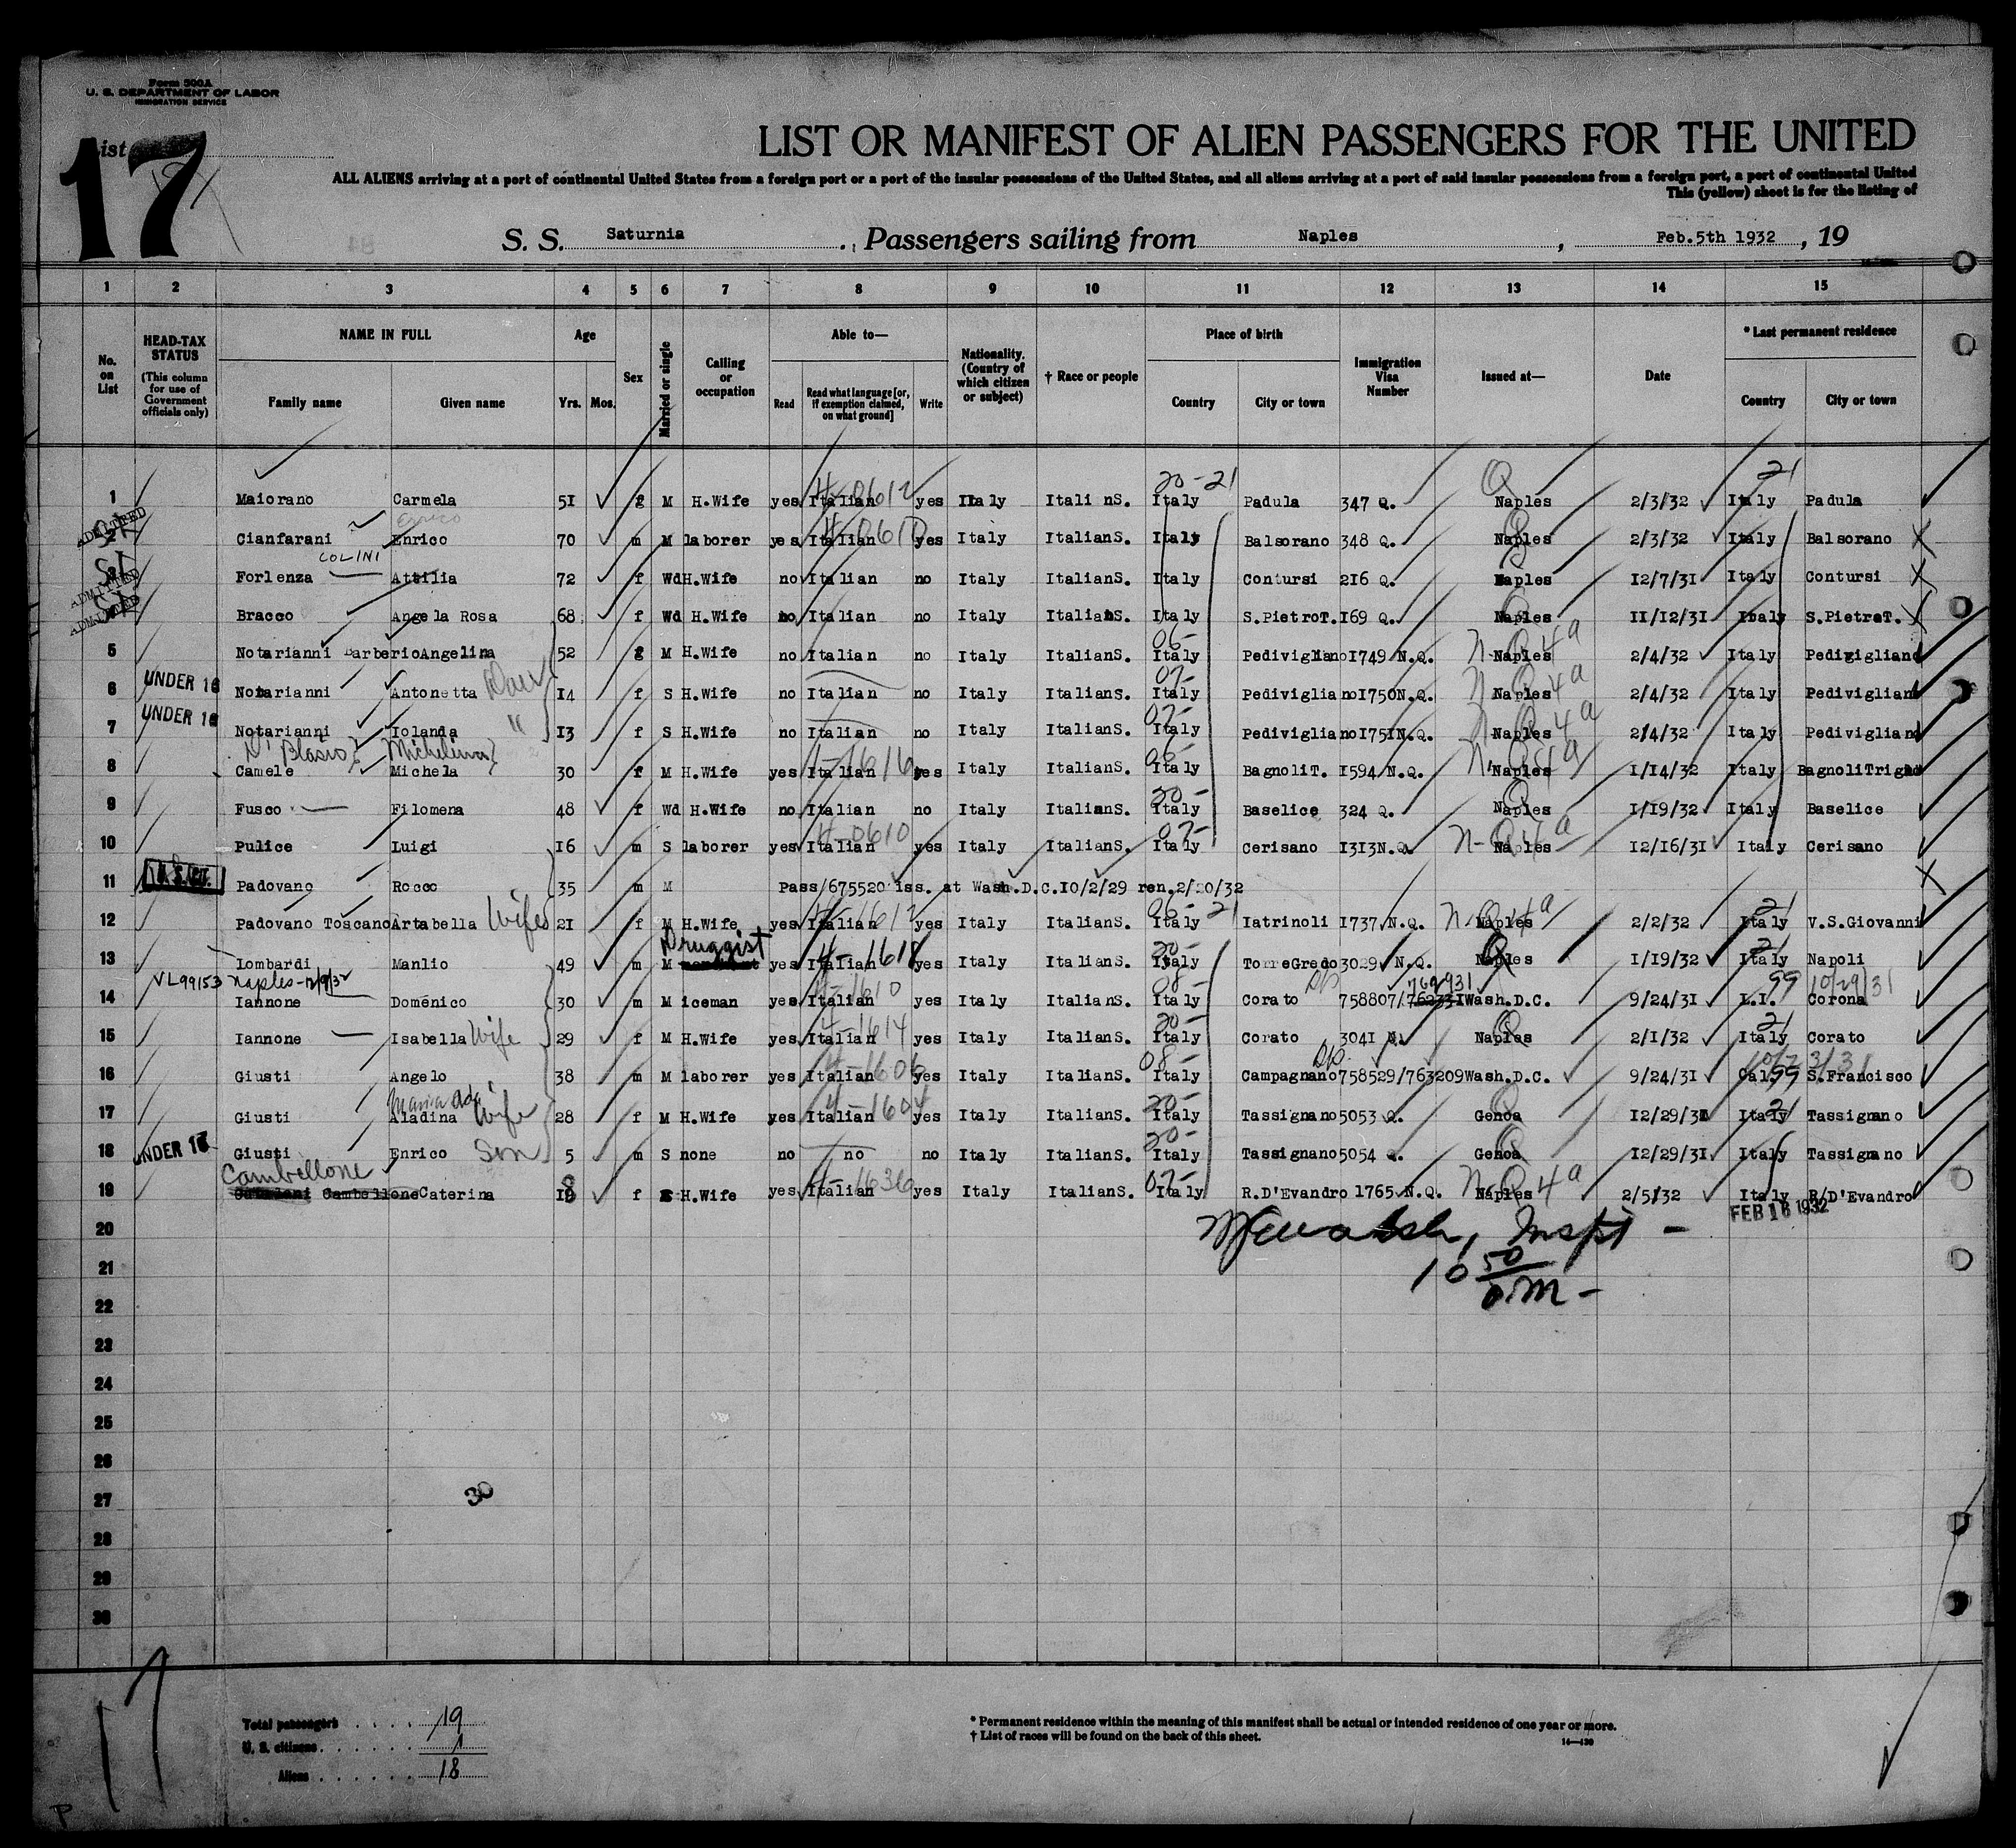 Form 500A
U. S. DEPARTMENT OF LABOR
IMMIGRATION SERVICE
List 17
LIST OR MANIFEST OF ALIEN PASSENGERS FOR THE UNITED
ALL ALIENS arriving at a port of continental United States from a foreign port or a port of the insular possessions of the United States, and all aliens arriving at a port of said insular possessions from a foreign port, a port of continental United
This (yellow) sheet is for the listing of
S. S. Saturnia, Passengers sailing from Naples, Feb.5th 1932, 19
1 2 3 4 5 6 7 8 9 10 11 12 13 14 15
No. on List HEAD-TAX STATUS (This column for use of Government officials only) NAME IN FULL Family name Given name Age Yrs. Mos. Sex Married or single Calling or occupation Able to— Read Read what language [or, if exemption claimed, on what ground] Write Nationality. (Country of which citizen or subject) † Race or people Place of birth Country City or town Immigration Visa Number Issued at— Date * Last permanent residence Country City or town
20-21 Q 21
1 Maiorano Carmela 51 f M H.Wife yes Italian 4-0612 yes Italy Itali nS. Italy Padula 347 Q. Naples 2/3/32 Italy Padula
ADMITTED SI Enrico
2 Cianfarani Enrico 70 m M laborer yes Italian yes Italy ItalianS. Italy Balsorano 348 Q. Naples 2/3/32 Italy Balsorano X
COLINI
ADMITTED SI Forlenza Attilia 72 f Wd H.Wife no Italian no Italy ItalianS. Italy Contursi 216 Q. Naples 12/7/31 Italy Contursi X
ADMITTED SI Bracco Angela Rosa 68 f Wd H.Wife no Italian no Italy ItalianS. Italy S.PietroT. 169 Q. Naples 11/12/31 Italy S.PietroT. X
5 Notarianni Barberio Angelina 52 f M H.Wife no Italian no Italy ItalianS. 06- Italy Pedivigliano 1749 N.Q. N-Q4a Naples 2/4/32 Italy Pedivigliano
6 UNDER 16 Notarianni Antonetta Dau 14 f S H.Wife no Italian no Italy ItalianS. 07- Italy Pedivigliano 1750N.Q. N-Q4a Naples 2/4/32 Italy Pedivigliano
7 UNDER 16 Notarianni Iolanda " 13 f S H.Wife no Italian no Italy ItalianS. 07- Italy Pedivigliano 1751N.Q. N-Q4a Naples 2/4/32 Italy Pedivigliano
D'Blasio Michelina
8 Camele Michela 30 f M H.Wife yes Italian yes Italy ItalianS. Italy BagnoliT. 1594 N.Q. Naples 1/14/32 Italy BagnoliTrigno
9 Fusco Filomena 48 f Wd H.Wife no Italian no Italy ItalianS. 20- Italy Baselice 324 Q. Q Naples 1/19/32 Italy Baselice
10 Pulice Luigi 16 m S laborer yes Italian 4-0610 yes Italy ItalianS. 07- Italy Cerisano 1313N.Q. N-Q4a Naples 12/16/31 Italy Cerisano
11 Padovano Rocco 35 m M Pass/675520 iss. at Wash.D.C.10/2/29 ren.2/20/32 X
12 Padovano Toscano Artabella Wife 21 f M H.Wife yes Italian yes Italy ItalianS. 06- 21 Italy Iatrinoli 1737 N.Q. N-Q4a Naples 2/2/32 21 Italy V.S.Giovanni
Druggist
13 Lombardi Manlio 49 m M yes Italian 4-1618 yes Italy ItalianS. 20- Italy TorreGreco 3029 N.Q. Q Naples 1/19/32 21 Italy Napoli
VL99153 Naples-12/9/32 DP 769931 99 10/29/31
14 Iannone Domenico 30 m M iceman yes Italian yes Italy ItalianS. 08- Italy Corato 758807/ Wash.D.C. 9/24/31 L.I. Corona
15 Iannone Isabella Wife 29 f M H.Wife yes Italian 4-1614 yes Italy ItalianS. 20- Italy Corato 3041 Q. Naples 2/1/32 21 Italy Corato
DP 10/23/31
16 Giusti Angelo 38 m M laborer yes Italian 4-1606 yes Italy ItalianS. 08- Italy Campagnano 758529/763209 Wash.D.C. 9/24/31 Cal. 99 S.Francisco
Maria Ada
17 Giusti Aladina Wife 28 f M H.Wife yes Italian 4-1604 yes Italy ItalianS. 20- Italy Tassignano 5053 Q. Genoa 12/29/31 21 Italy Tassignano
18 UNDER 16 Giusti Enrico Son 5 m S none no no no Italy ItalianS. 20- Italy Tassignano 5054 Q. Genoa 12/29/31 Italy Tassignano
Cambellone
19 Cambellone Caterina 18 f S H.Wife yes Italian 4-1636 yes Italy ItalianS. 07- Italy R.D'Evandro 1765 N.Q. N-Q4a Naples 2/5/32 Italy R/D'Evandro
FEB 16 1932
20 Inspt -
21 10 50
22
23
24
25
26
27 30
28
29
30
17
Total passengers 19
U. S. citizens 1
Aliens 18
* Permanent residence within the meaning of this manifest shall be actual or intended residence of one year or more.
† List of races will be found on the back of this sheet.
14—430
P